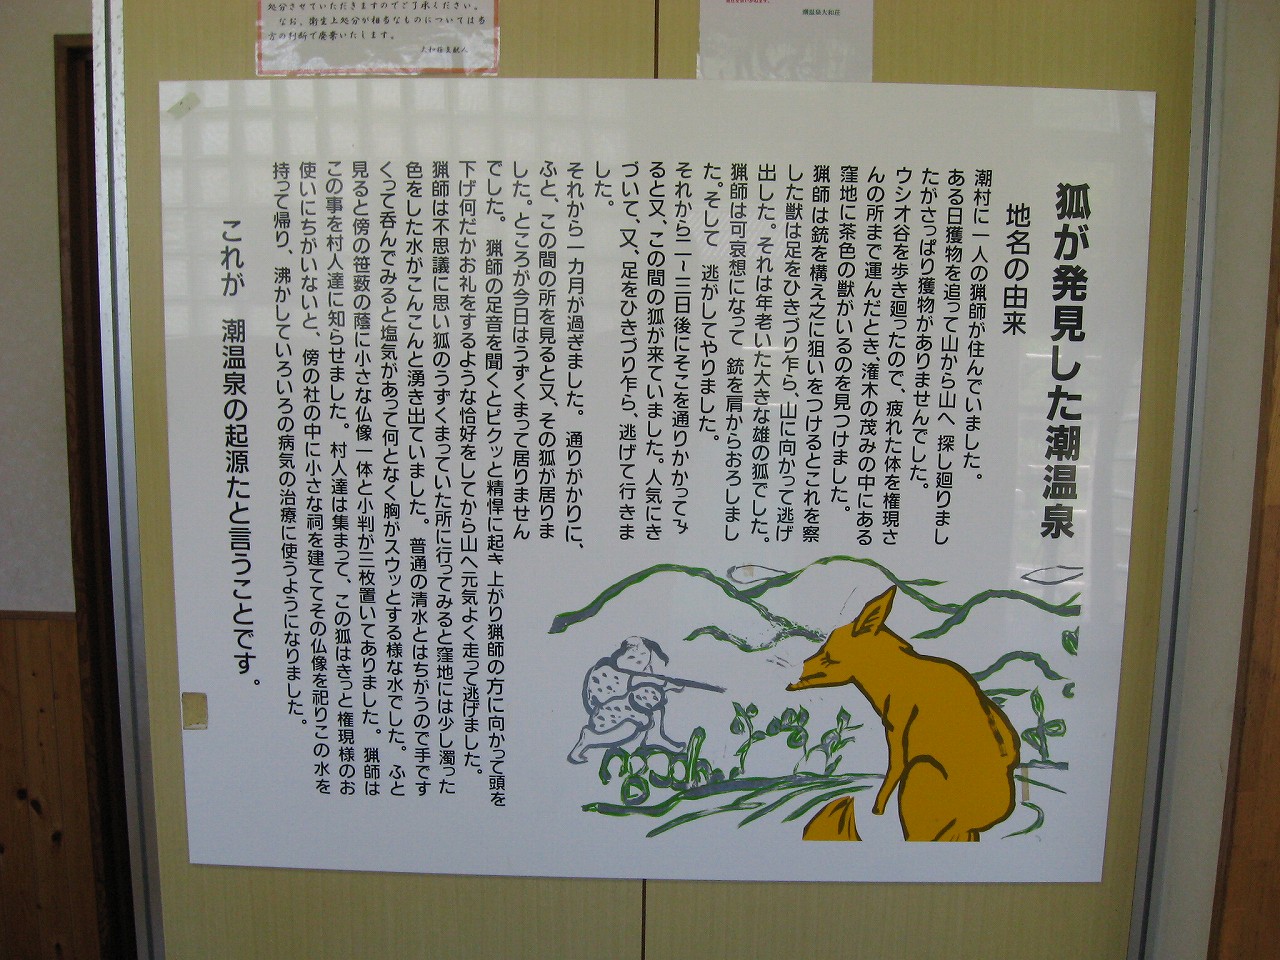 処分させていただきますのでご了承ください。
なお、衛生上処分が相当なものについては当
方の判断で廃棄いたします。
潮温泉大和荘
狐が発見した潮温泉
地名の由来
潮村に一人の猟師が住んでいました。
ある日獲物を追って山から山へ 探し廻りまし
たがさっぱり獲物がありませんでした。
ウシオ谷を歩き廻ったので、疲れた体を権現さ
んの所まで運んだとき、潅木の茂みの中にある
窪地に茶色の獣がいるのを見つけました。
猟師は銃を構え之に狙いをつけるとこれを察
した獣は足をひきづり乍ら、山に向かって逃げ
出した。それは年老いた大きな雄の狐でした。
猟師は可哀想になって 銃を肩からおろしまし
た。そして 逃がしてやりました。
それから二~三日後にそこを通りかかってみ
ると又、この間の狐が来ていました。人気にき
づいて、又、足をひきづり乍ら、逃げて行きま
した。
それから一カ月が過ぎました。 通りがかりに、
ふと、この間の所を見ると又、その狐が居りま
した。ところが今日はうずくまって居りません
でした。 猟師の足音を聞くとピクッと精悍に起き 上がり猟師の方に向かって頭を
下げ何だかお礼をするような恰好をしてから山へ元気よく走って逃げました。
猟師は不思議に思い狐のうずくまっていた所に行ってみると窪地には少し濁った
色をした水がこんこんと湧き出ていました。 普通の清水とはちがうので手です
くって呑んでみると塩気があって何となく胸がスウッとする様な水でした。 ふと
見ると傍の笹薮の蔭に小さな仏像一体と小判が三枚置いてありました。 猟師は
この事を村人達に知らせました。 村人達は集まって、この狐はきっと権現様のお
使いにちがいないと、傍の社の中に小さな祠を建ててその仏像を祀りこの水を
持って帰り、沸かしていろいろの病気の治療に使うようになりました。
これが 潮温泉の起源たと言うことです。